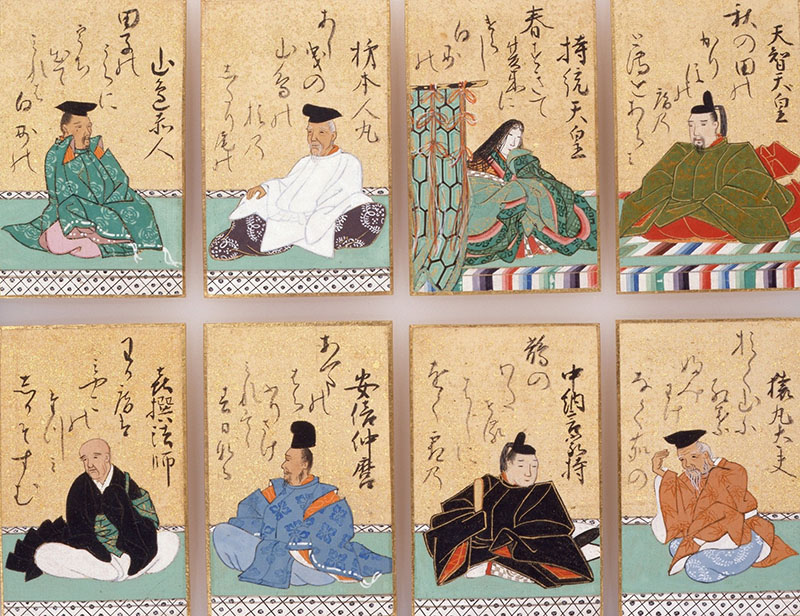 天智天皇
秋の田の
かりほの
庵乃
苫をあらミ
持統天皇
春すきて
夏来に
けらし
白妙の
柿本人丸
あし曳の
山鳥の
尾乃
したり尾の
山邊赤人
田子の
うらに
うち
出て
みれは
白妙の
猿丸大夫
おく山に
紅葉
ふみ
わけ
なく鹿の
中納言家持
鵲の
わたせる
はしに
をく霜乃
安倍仲麿
あまの
はら
ふりさけ
みれは
春日なる
喜撰法師
わか庵は
みやこの
たつミ
しかそすむ